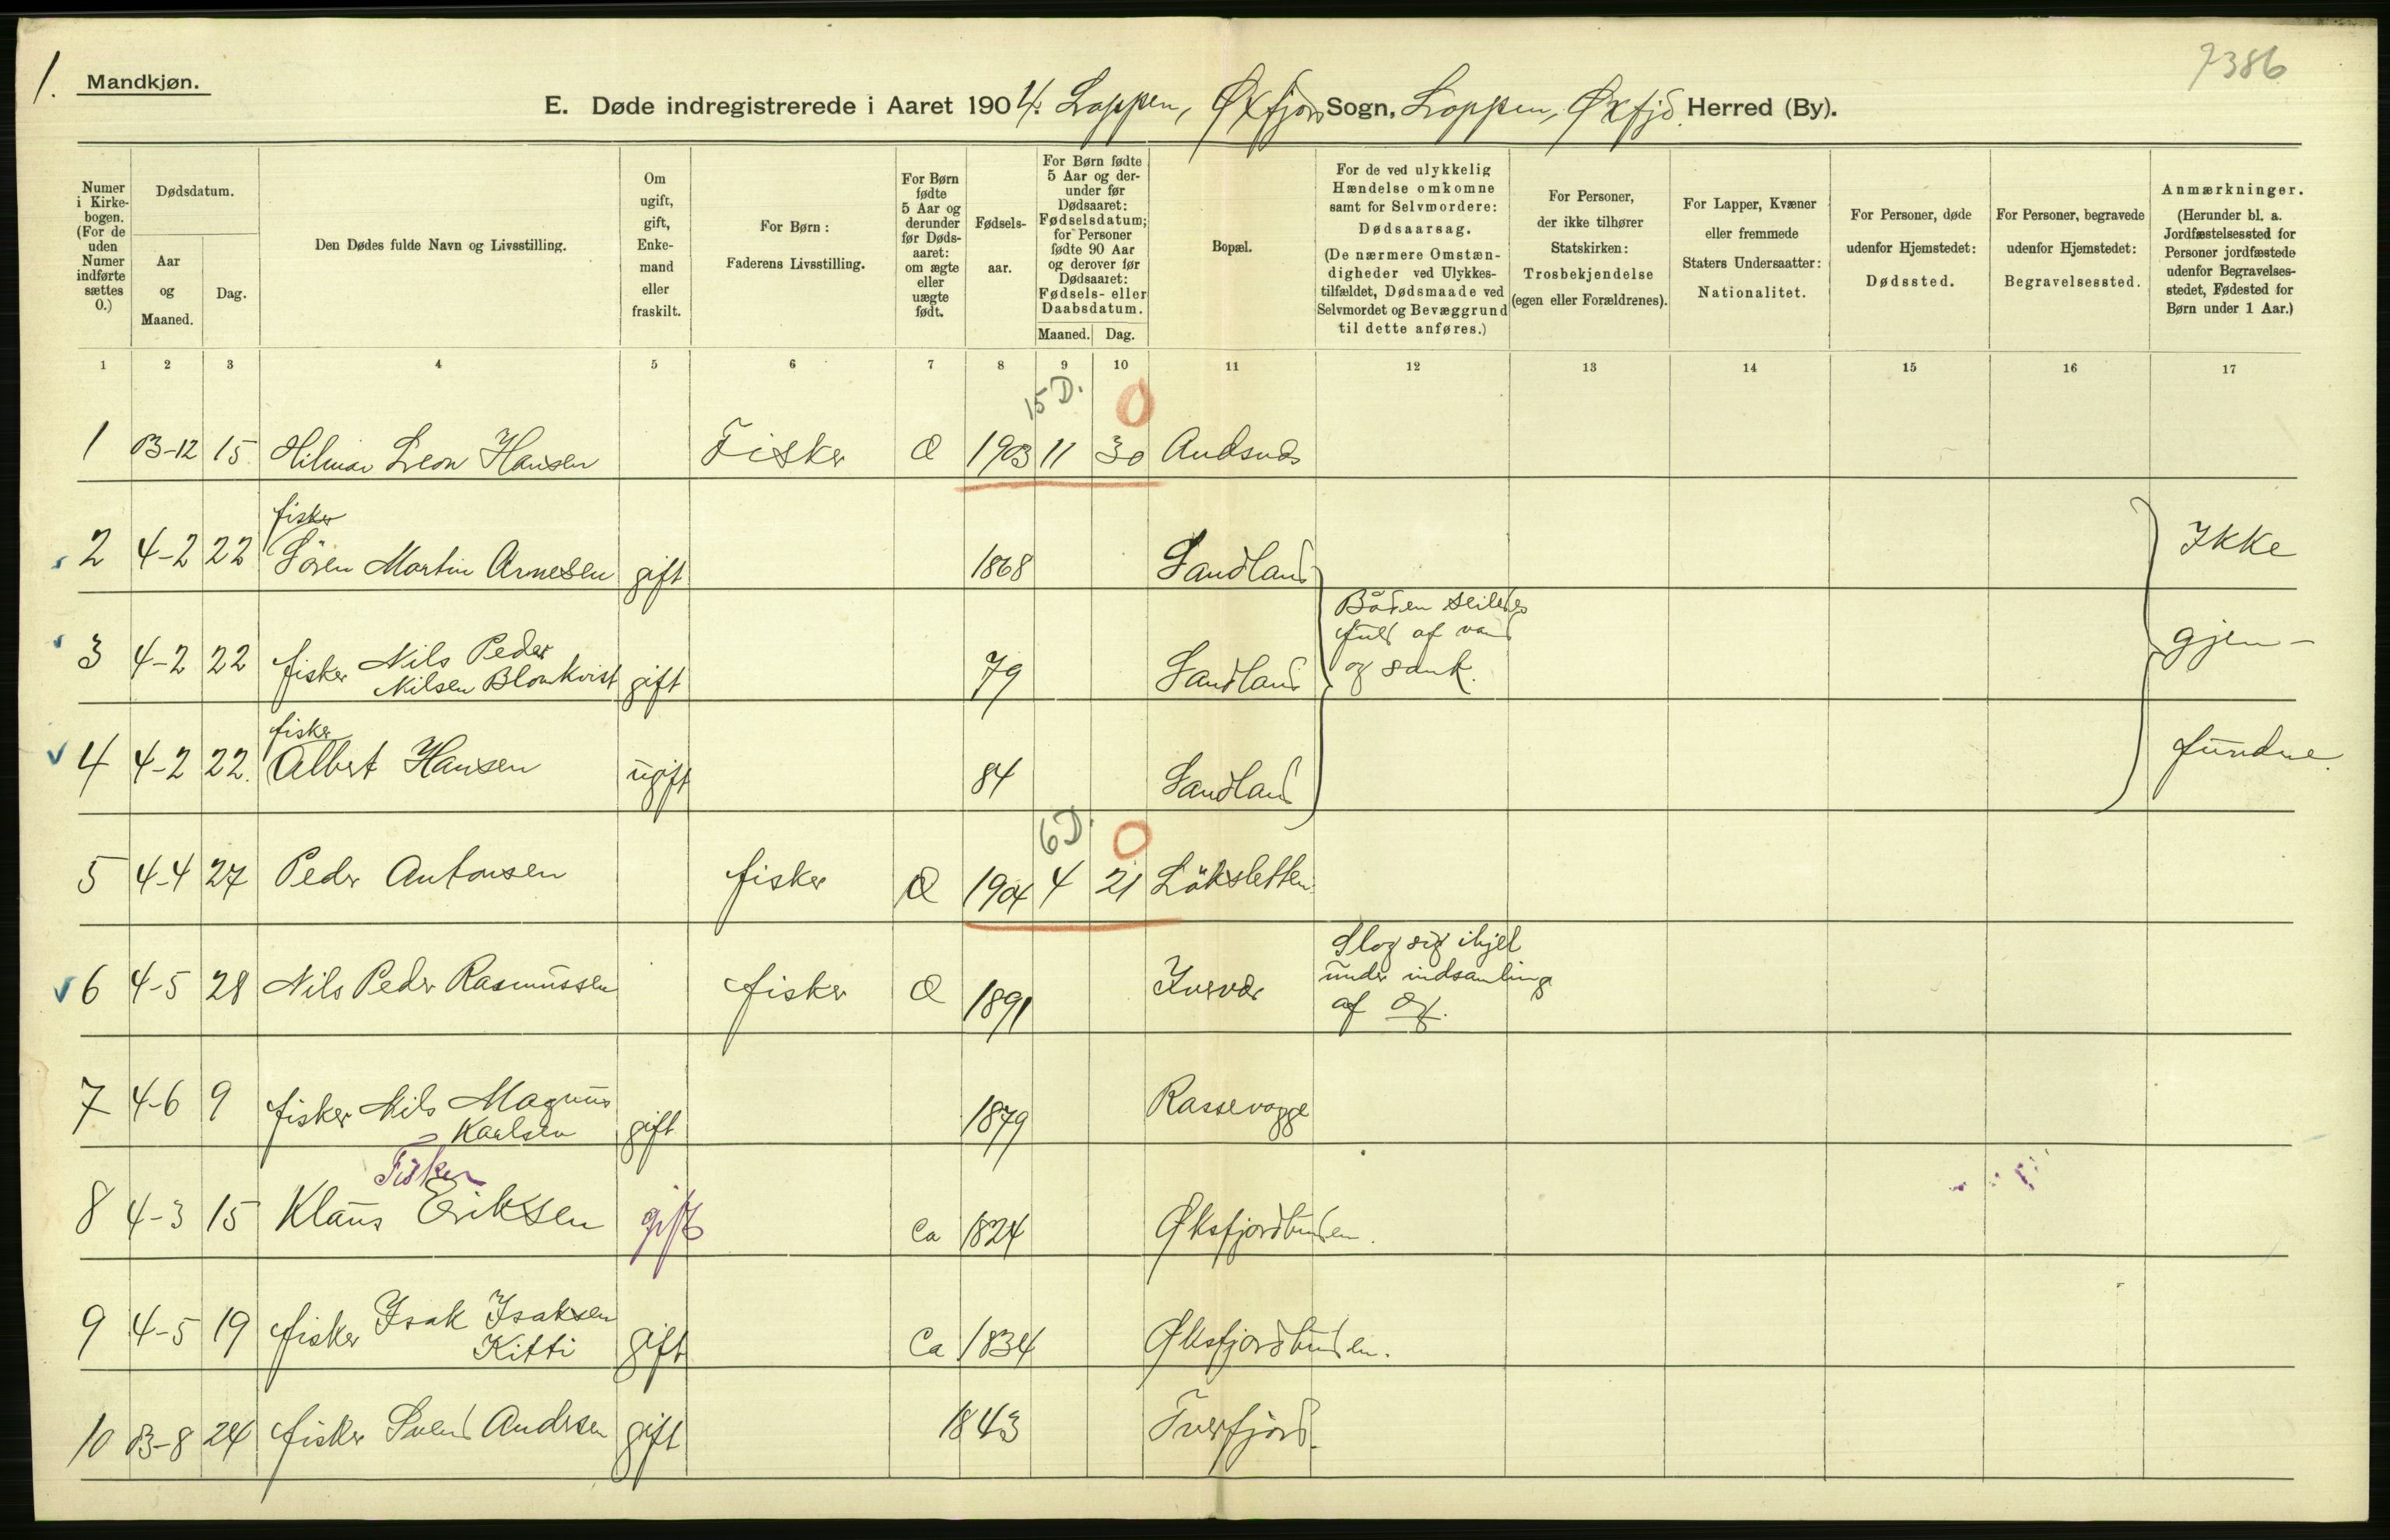 1.
Mandkjøn.
7386
E. Døde indregistrerede i Aaret 1904. Loppen, Øxfjord Sogn, Loppen, Øxfjd. Herred (By).
Numer i Kirke-bogen. (For de uden Numer indførte sættes 0.)
Dødsdatum.
Aar og Maaned.
Dag.
Den Dødes fulde Navn og Livsstilling.
Om ugift, gift, Enke-mand eller fraskilt.
For Børn: Faderens Livsstilling.
For Børn fødte 5 Aar og derunder før Døds-aaret: om ægte eller uægte født.
Fødsels-aar.
For Børn fødte 5 Aar og der-under før Dødsaaret: Fødselsdatum; for Personer fødte 90 Aar og derover før Dødsaaret: Fødsels- eller Daabsdatum.
Maaned. Dag.
Bopæl.
For de ved ulykkelig Hændelse omkomne samt for Selvmordere: Dødsaarsag. (De nærmere Omstæn-digheder ved Ulykkes-tilfældet, Dødsmaade ved Selvmordet og Bevæggrund til dette anføres.)
For Personer, der ikke tilhører Statskirken: Trosbekjendelse (egen eller Forældrenes).
For Lapper, Kvæner eller fremmede Staters Undersaatter: Nationalitet.
For Personer, døde udenfor Hjemstedet: Dødssted.
For Personer, begravede udenfor Hjemstedet: Begravelsessted.
Anmærkninger. (Herunder bl. a. Jordfæstelsessted for Personer jordfæstede udenfor Begravelses-stedet, Fødested for Børn under 1 Aar.)
1 2 3 4 5 6 7 8 9 10 11 12 13 14 15 16 17
15 D. 0
1 03-12 15 Hilmar Leon Hansen Fisker Æ 1903 11 30 Andsnes
fisker
2 4-2 22 Sören Martin Arnesen gift 1868 Sandland Ikke
Båden seiledes
fuld af vand
og sank.
3 4-2 22 fisker Nils Peder
Nilsen Blomkvist gift 79 Sandland gjen-
fisker
4 4-2 22. Albert Hansen ugift 84 Sandland fundne.
6 D. 0
5 4-4 27 Peder Antonsen fisker Æ 1904 4 21 Löksletten
Slog sig ihjel
under indsamling
af Æg.
6 4-5 28 Nils Peder Rasmussen fisker Æ 1891
7 4-6 9 fisker Nils Magnus
Karlsen gift 1879 Rassevagge
Fisker
8 4-3 15 Klaus Eriksen gift ca 1824 Øksfjordbunden.
9 4-5 19 fisker Isak Isaksen
Kitti gift ca 1834 Øksfjordbunden.
10 03-8 24 fisker Svend Andersen gift 1843 Tverfjord.